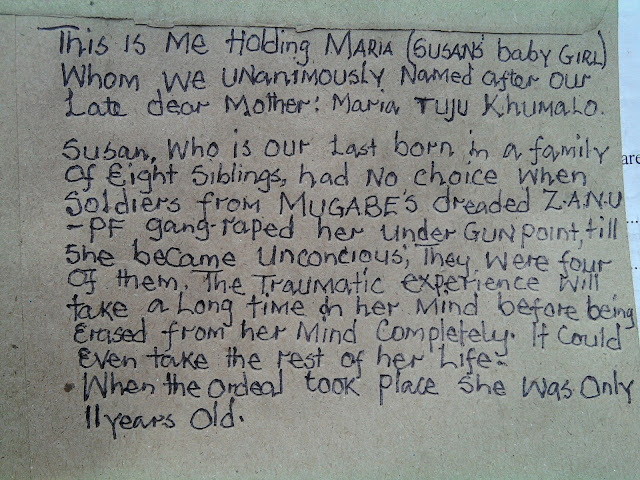 This is me Holding MARIA (SUSAN'S baby GIRL)
Whom we unanimously Named after our
Late dear Mother: Maria TUJU Khumalo.
Susan, Who is our Last born in a family
Of Eight Siblings, had No choice When
Soldiers from MUGABE'S dreaded Z.A.N.U
-PF gang-raped her under GUN point, till
She became Unconcious; They were four
Of them. The Traumatic experience will
take a Long time in her Mind before being
Erased from her Mind Completely. It Could
Even take the rest of her Life.
When the ordeal took place She Was Only
11 years Old.
are